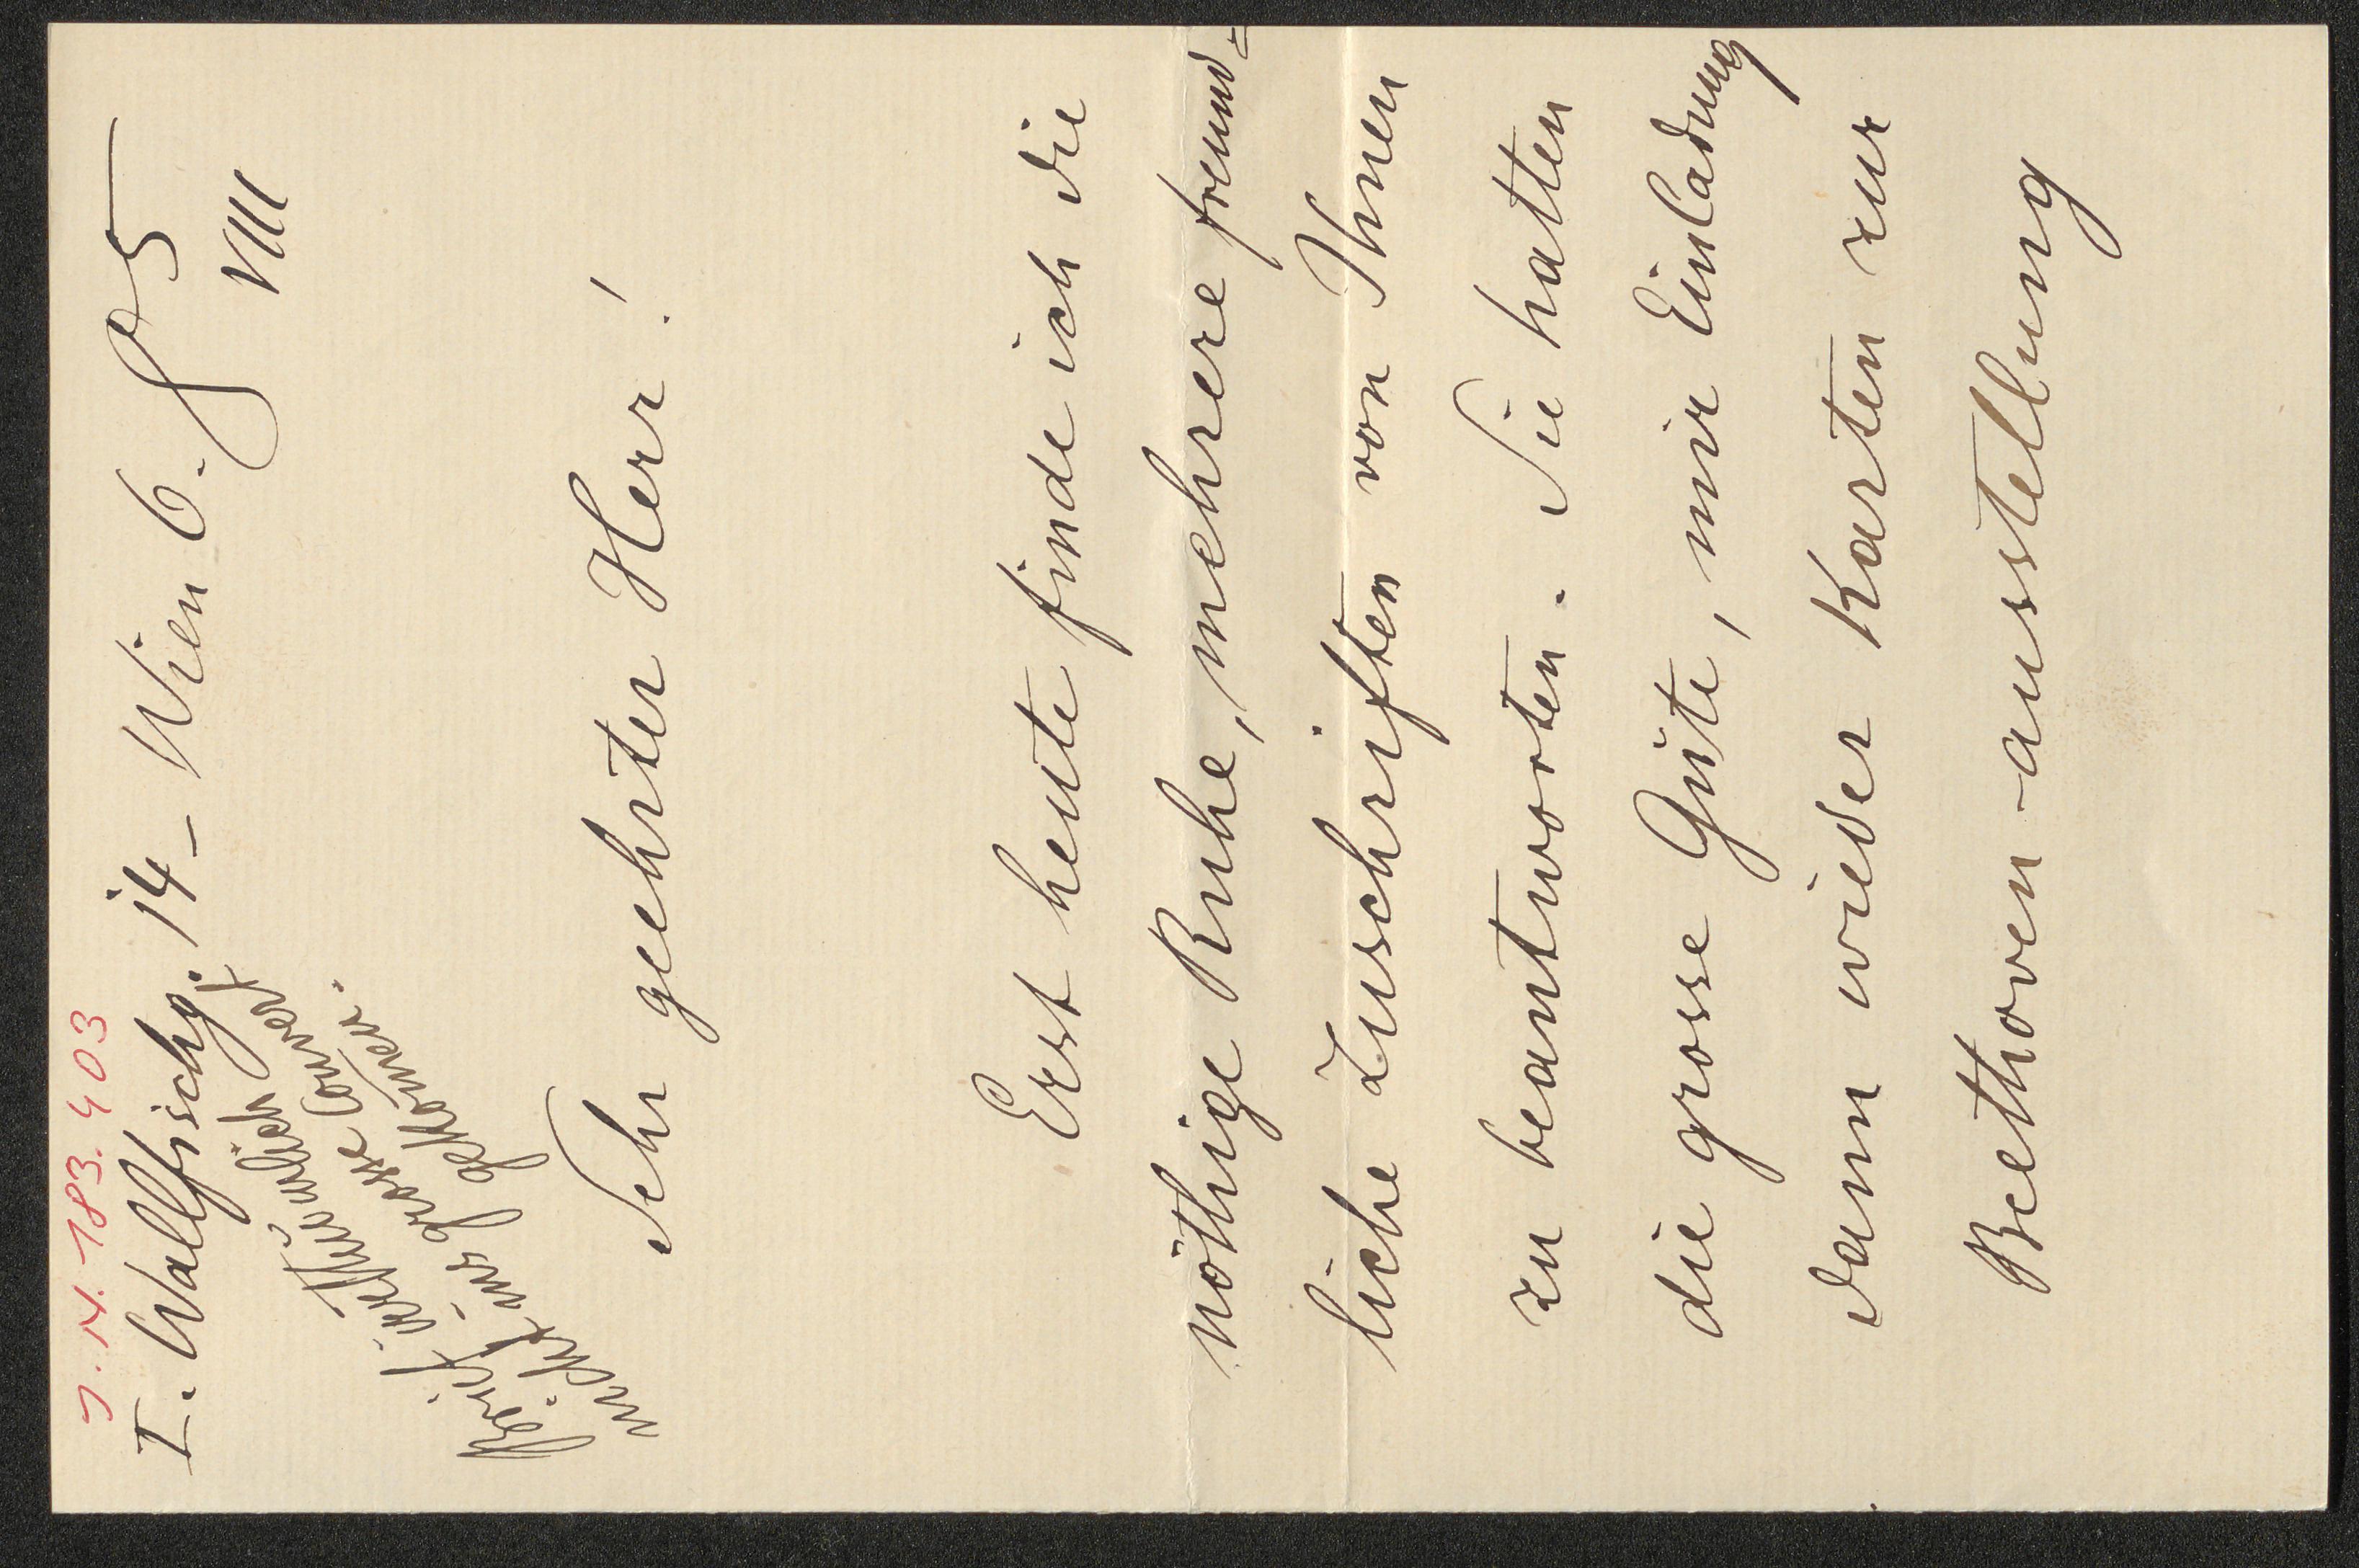 J. N. 183.403
I. Wallfischg. 14 – Wien 6. 85
VIII
Sehr geehrter Herr!
Erst heute finde ich die
nöthige Ruhe, mehrere freund=
liche Zuschriften von Ihnen
zu beantworten. Sie hatten
die grosse Güte, mir Einladung
dann wieder Karten zur
Beethoven-ausstellung